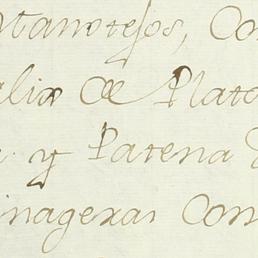 ntanotejos, Co
alix de Plato
y Patena
inageras Con